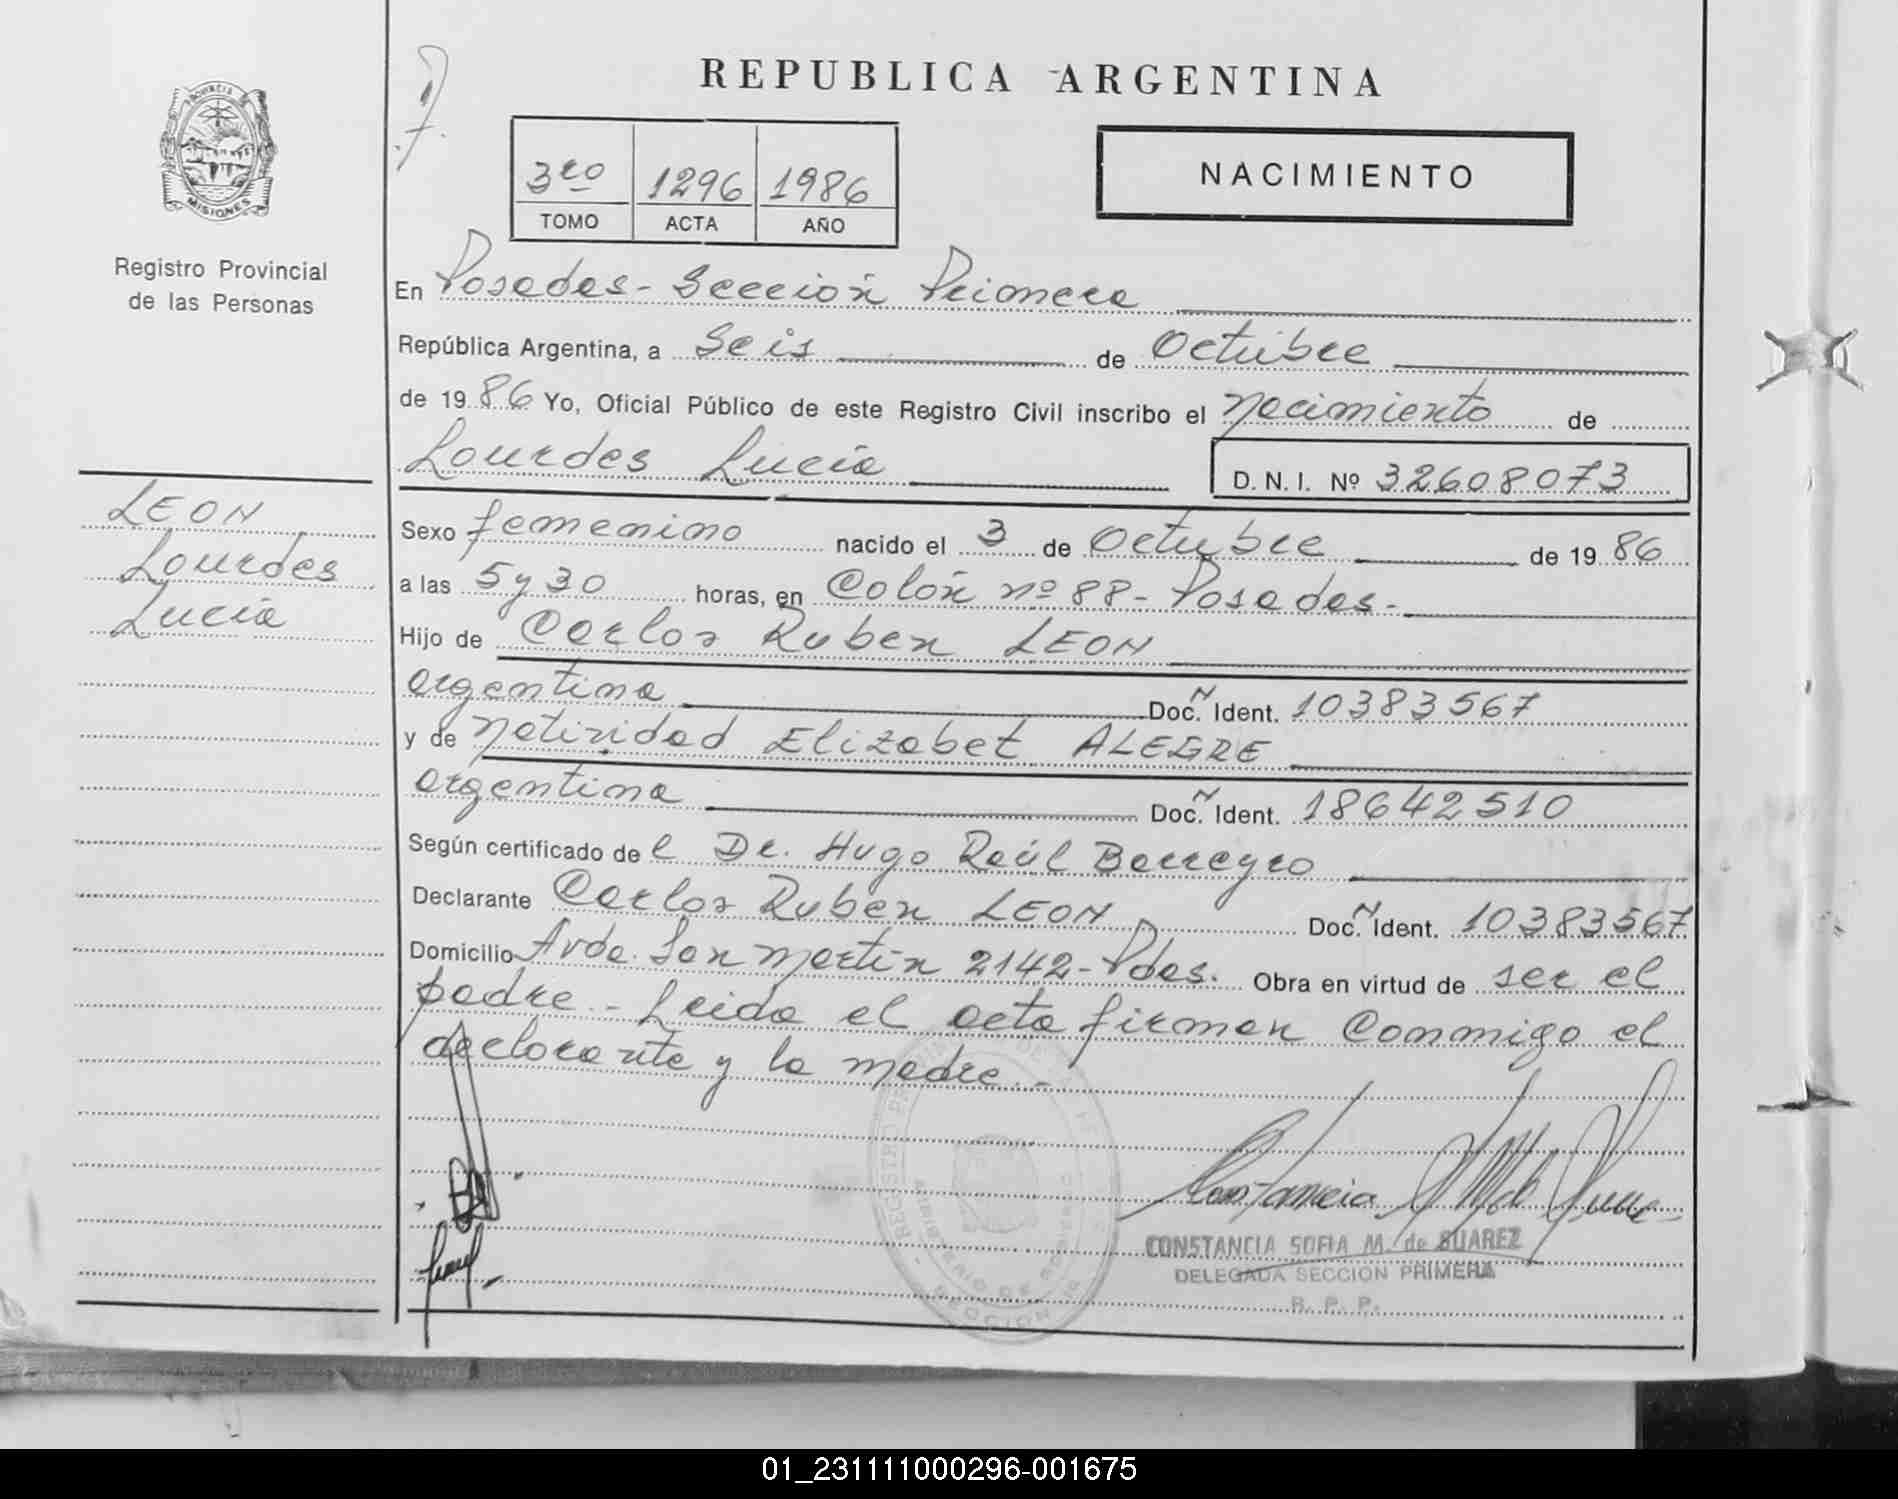 REPUBLICA ARGENTINA
PROVINCIA DE
MISIONES
Registro Provincial
de las Personas
3ro 1296 1986
TOMO ACTA AÑO
NACIMIENTO
En Posadas - Sección Primera
República Argentina, a Seis de Octubre
de 1986 Yo, Oficial Público de este Registro Civil inscribo el nacimiento de
Lourdes Lucía D. N. I. Nº 32608073
LEON
Lourdes
Lucía
Sexo femenino nacido el 3 de Octubre de 1986
a las 5 y 30 horas, en Colón nº 88 - Posadas.-
Hijo de Carlos Ruben LEON
argentina Doc. Ident. 10383567
y de Natividad Elizabet ALEGRE
argentina Doc. Ident. 18642510
Según certificado del Dr. Hugo Raúl Barreyro
Declarante Carlos Ruben LEON Doc. Ident. 10383567
Domicilio Avda. San Martín 2142 - Pdas. Obra en virtud de ser el
padre.- Leida el acta firman conmigo el
declarante y la madre.-
CONSTANCIA SOFIA M. de SUAREZ
DELEGADA SECCION PRIMERA
R. P. P.
01_231111000296-001675